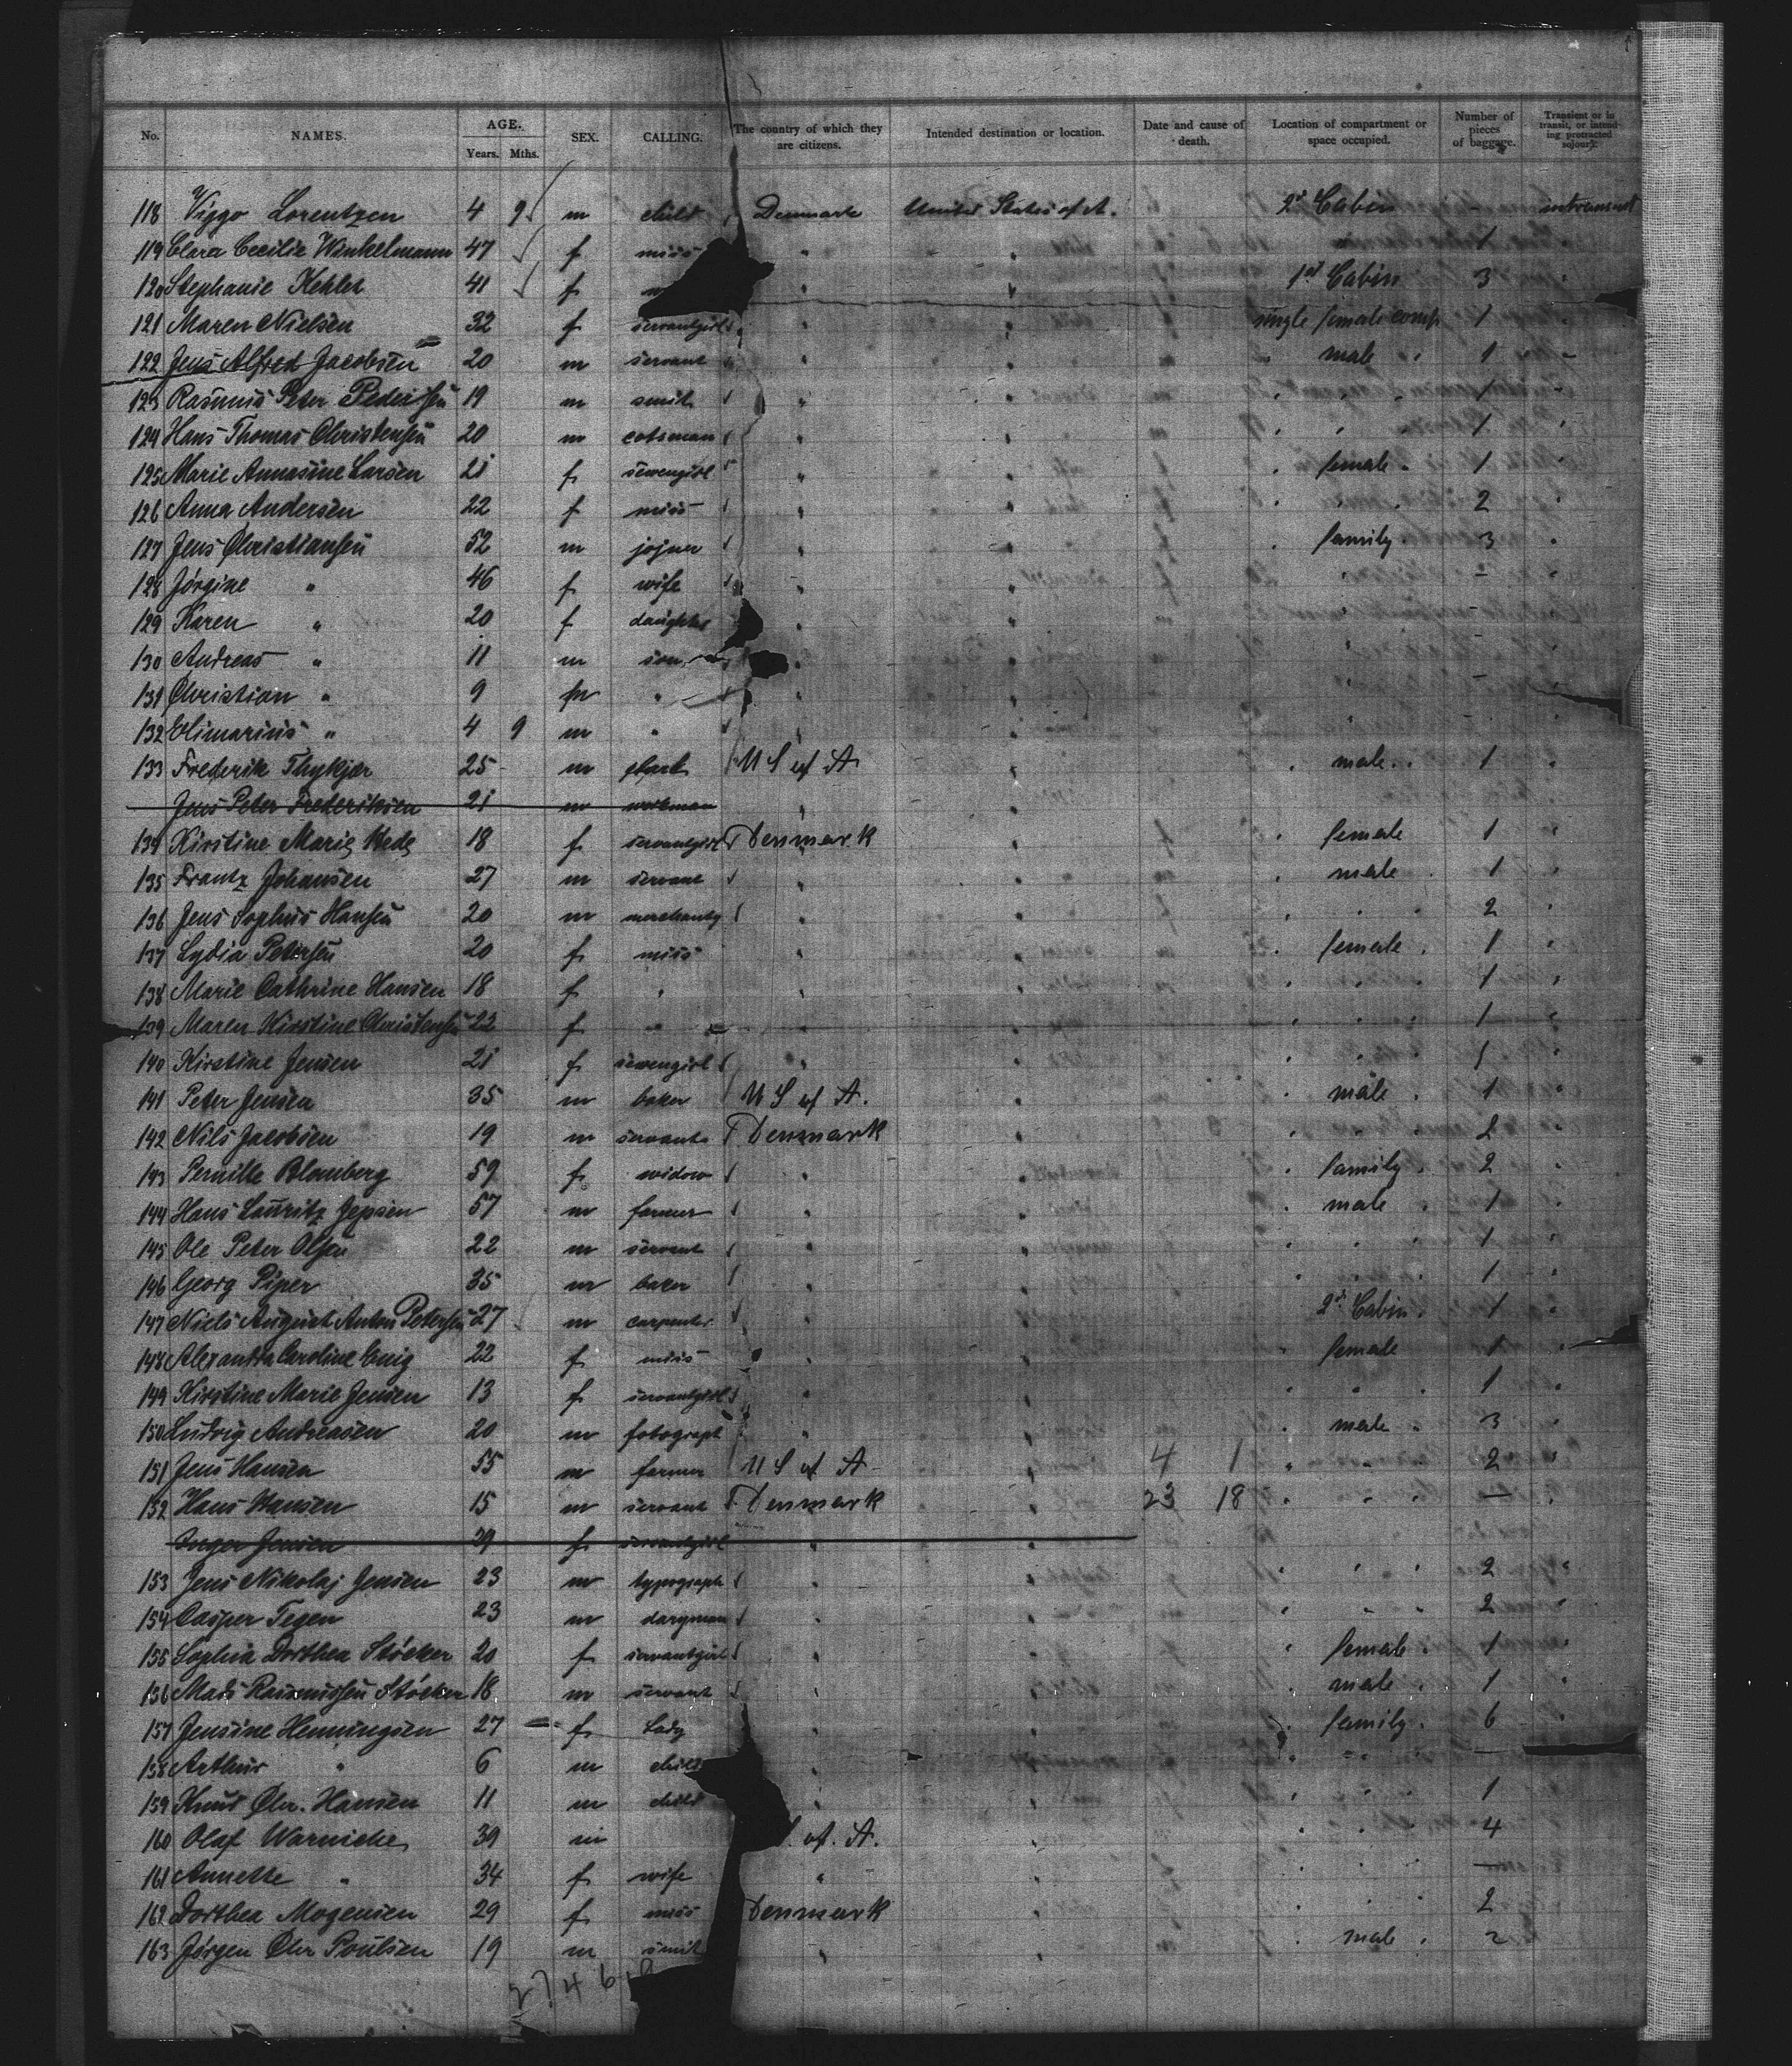 No. NAMES. AGE. Years. Mths. SEX. CALLING. The country of which they are citizens. Intended destination or location. Date and cause of death. Location of compartment or space occupied. Number of pieces of baggage. Transient or in transit, or intending protracted sojourn.
118 Viggo Lorentzen 4 9 m child Denmark United States of A. 2d Cabin - intransit
119 Clara Cecilie Winkelmann 47 f miss " " " 1 "
120 Stephanie Kehler 41 f " " 1st Cabin 3 "
121 Maren Nielsen 32 f servantgirl " " single female comp 1 "
122 Jens Alfred Jacobsen 20 m servant " " " male " 1 "
123 Rasmus Peter Pedersen 19 m smit " " " " " 1 "
124 Hans Thomas Christensen 20 m cotsman " " " " " 1 "
125 Marie Annasine Larsen 21 f sewengirl " " " female " 1 "
126 Anna Andersen 22 f miss " " " " " 2 "
127 Jens Christiansen 52 m jojner " " " family " 3 "
128 Jörgine " 46 f wife " " " - "
129 Karen " 20 f daughter " " " - "
130 Andreas " 11 m son " " " - "
131 Christian " 9 m " " " " - "
132 Elimarius " 4 9 m " " " " - "
133 Frederik Thykjær 25 m U S of A " " male " 1 "
Jens Peter Frederiksen 21 m workman " "
134 Kirstine Marie Hede 18 f servantgirl Denmark " " female 1 "
135 Frantz Johansen 27 m servant " " " male " 1 "
136 Jens Sophus Hansen 20 m " " " " " 2 "
137 Lydia Petersen 20 f miss " " " female " 1 "
138 Marie Cathrine Hansen 18 f " " " " " " 1 "
139 Maren Kirstine Christensen 22 f " " " " " " 1 "
140 Kirstine Jensen 21 f sewengirl " " " " " 1 "
141 Peter Jensen 35 m baker U S of A. " " male " 1 "
142 Nils Jacobsen 19 m servant Denmark " " " " 2 "
143 Pernille Blomberg 59 f widow " " " family " 2 "
144 Hans Lauritz Jepsen 57 m farmer " " " male " 1 "
145 Ole Peter Olsen 22 m servant " " " " " 1 "
146 Georg Piper 35 m baker " " " " " 1 "
147 Niels August Anton Petersen 27 m carpenter " " 2d Cabin " 1 "
148 Alexandra Caroline 22 f miss " " " female 1 "
149 Kirstine Marie Jensen 13 f servantgirl " " " " " 1 "
150 Ludvig Andreasen 20 m fotograph " " " male " 3 "
151 Jens Hansen 55 m farmer U S of A " 4 1 " " " 2 "
152 Hans Hansen 15 m servant Denmark " 23 18 " " " — "
Inger Jensen 39 f servantgirl " "
153 Jens Nikolaj Jensen 23 m typograph " " " " " 2 "
154 Casper Tegen 23 m daryman " " " " " 2 "
155 Sophia Dorthea Stöcker 20 f servantgirl " " " female " 1 "
156 Mads Rasmussen Stöcker 18 m servant " " " male " 1 "
157 Jensine Henningsen 27 f Lady " " " family " 6 "
158 Arthur " 6 m child " " " " " —
159 Knud Chr. Hansen 11 m child " " " " " 1
160 Olaf Warnicke 39 m . of. A. " " " " 4
161 Annette " 34 f wife " " " " " —
162 Dorthea Mogensen 29 f miss Denmark " " " " 2
163 Jörgen Chr Poulsen 19 m smit " " " male " 2
27 4 6